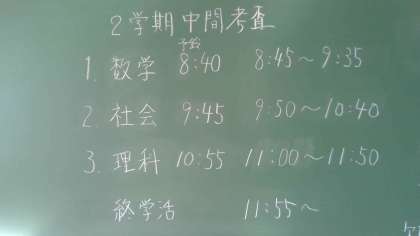 2学期中間考査
予鈴
1. 数学 8:40 8:45～9:35
2. 社会 9:45 9:50～10:40
3. 理科 10:55 11:00～11:50
終学活 11:55～